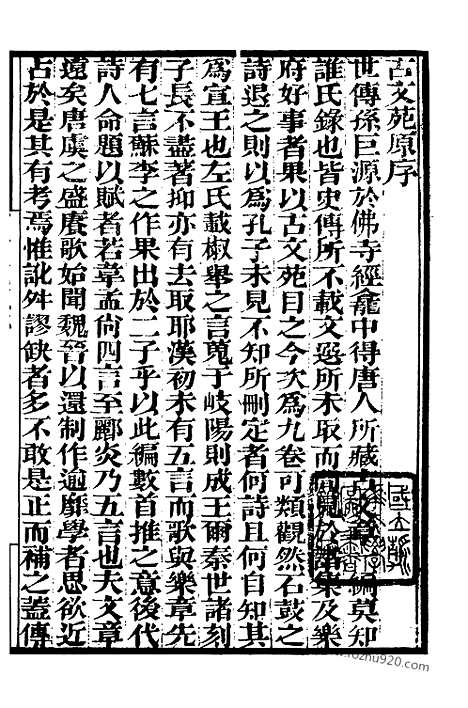 古文苑原序
世傳孫巨源於佛寺經龕中得唐人所藏古文章一編莫知
誰氏錄也皆史傳所不載文選所未取而間見於諸集及樂
府好事者果以古文苑目之今次為九卷可類觀然石鼓之
詩退之則以為孔子未見不知所刪定者何詩且何自知其
為宣王也左氏載椒舉之言蒐于岐陽則成王爾秦世諸刻
子長不盡著抑亦有去取耶漢初未有五言而歌與樂章先
有七言蘇李之作果出於二子乎以此編數首推之意後代
詩人命題以賦者若韋孟尚四言至酈炎乃五言也夫文章
遠矣唐虞之盛賡歌始聞魏晉以還制作逾靡學者思欲近
古於是其有考焉惟訛舛謬缺者多不敢是正而補之蓋傳